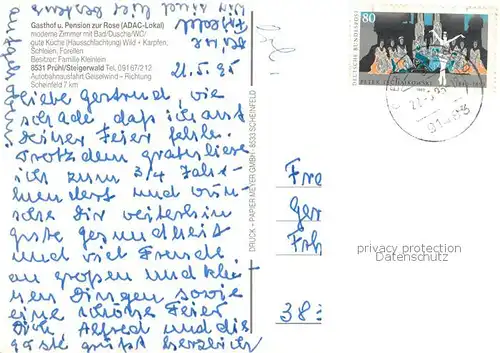 Gasthof u. Pension zur Rose (ADAC-Lokal)
moderne Zimmer mit Bad/Dusche/WC/
gute Küche (Hausschlachtung) Wild • Karpfen,
Schleien, Forellen
Besitzer: Familie Kleinlein
8531 Prühl/Steigerwald Tel. 09167/212
Autobahnausfahrt Geiselwind – Richtung
Scheinfeld 7 km
21.5.95
Liebe Gertrud, wie
schade daß ich auf
Deiner Feier fehle.
Trotzdem gratuliere
ich zum 3/4 Jahr-
hundert und wün-
sche Dir weiterhin
gute Gesundheit
und viel Freude
an großen und klei-
nen Dingen sowie
eine schöne Feier
Dich, Alfred und die
Gäste grüßt herzlich
DRUCK + PAPIER MEYER GMBH · 8533 SCHEINFELD
80
DEUTSCHE BUNDESPOST
PETER TSCHAIKOWSKY
Fr
Ger
Fah
38
privacy protection
Datenschutz